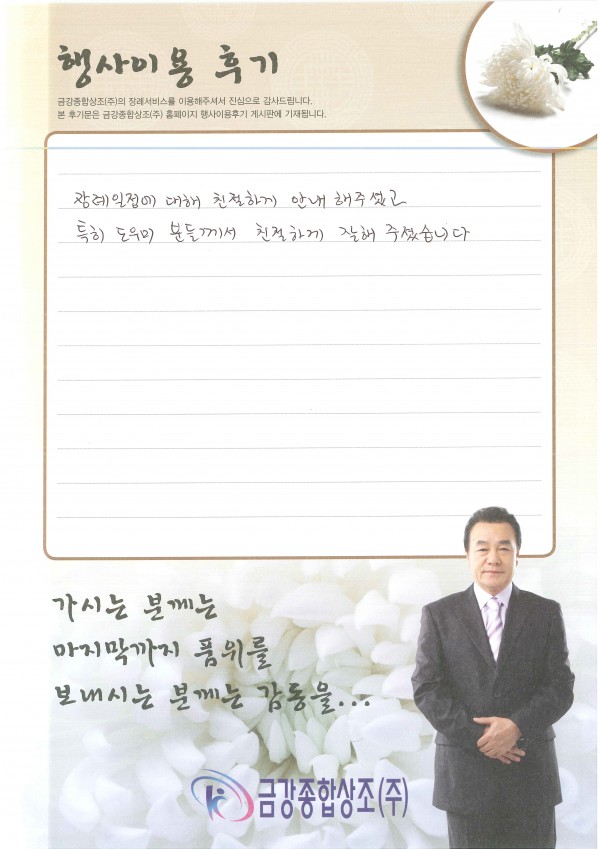 행사이용 후기
금강종합상조(주)의 장례서비스를 이용해주셔서 진심으로 감사드립니다.
본 후기문은 금강종합상조(주) 홈페이지 행사이용후기 게시판에 기재됩니다.
장례일정에 대해 친절하게 안내해주셨고
특히 도우미 분들께서 친절하게 잘해 주셨습니다
가시는 분께는
마지막까지 품위를
보내시는 분께는 감동을...
금강종합상조(주)